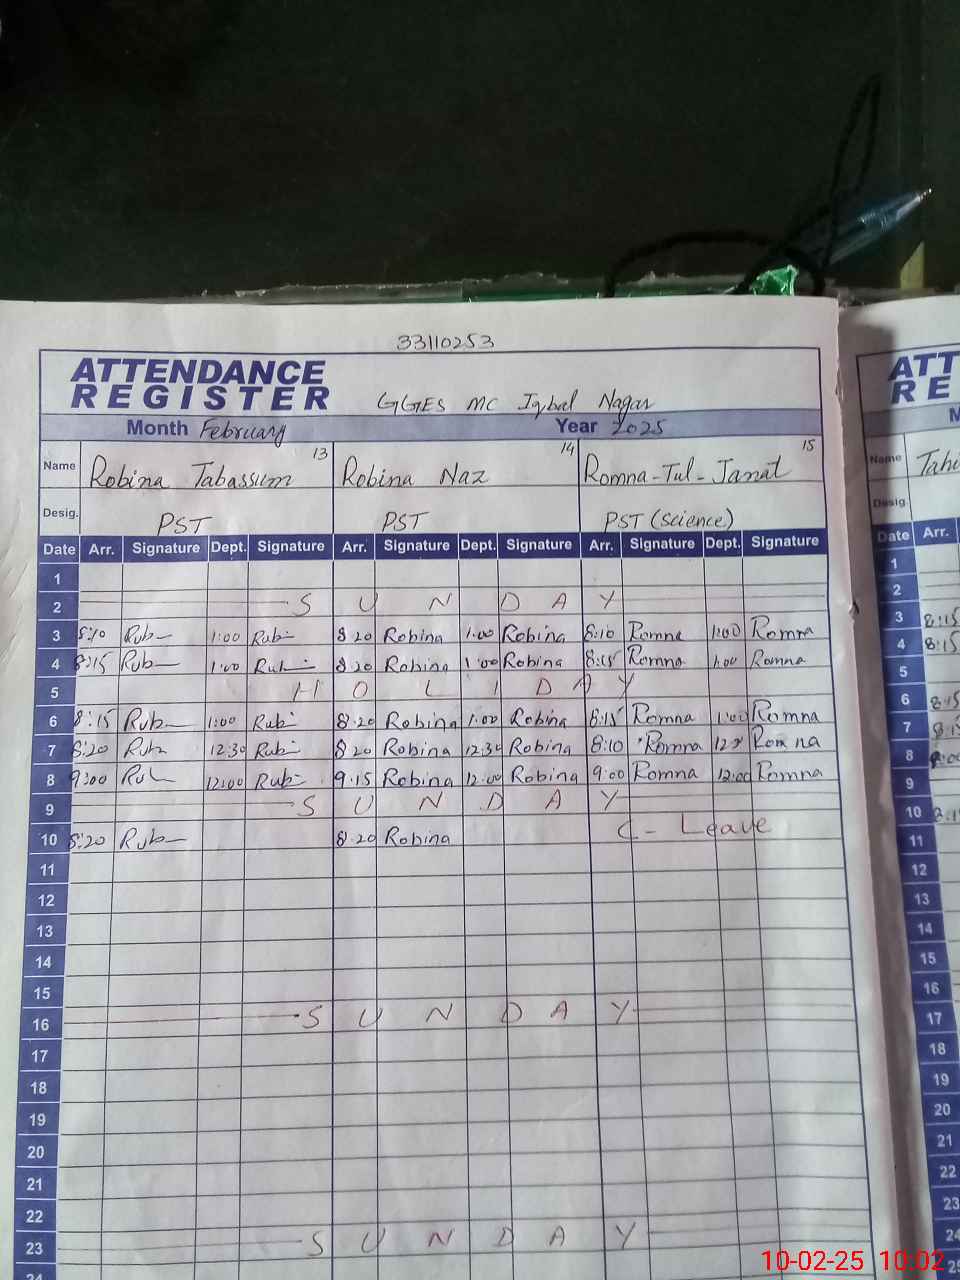 33110253
ATTENDANCE
REGISTER
GGES MC Iqbal Nagar
Month February Year 2025
Name Robina Tabassum 13 Robina Naz 14 Romna-Tul-Janat 15
Desig. PST PST PST (Science)
Date Arr. Signature Dept. Signature Arr. Signature Dept. Signature Arr. Signature Dept. Signature
1
2 SUNDAY
3 8:10 Rub 1:00 Rub 8 20 Robina 1:00 Robina 8:10 Romna 1:00 Romna
4 8:15 Rub 1:00 Rub 8:20 Robina 1:00 Robina 8:15 Romna 1:00 Romna
5 HOLIDAY
6 8:15 Rub 1:00 Rub 8:20 Robina 1:00 Robina 8:15 Romna 1:00 Romna
7 8:20 Rub 12:30 Rub 8 20 Robina 12:30 Robina 8:10 Romna Romna
8 9:00 Rub 12:00 Rub 9:15 Robina 12:00 Robina 9:00 Romna 12:00 Romna
9 SUNDAY
10 8:20 Rub 8:20 Robina C - Leave
11
12
13
14
15
16 SUNDAY
17
18
19
20
21
22
23 SUNDAY
24
ATT
RE
M
Name Tahi
Desig.
Date Arr.
1
2
3 8:15
4 8:15
5
6 8:15
7 8:15
8
9
10
11
12
13
14
15
16
17
18
19
20
21
22
23
24
25
10-02-25 10:02